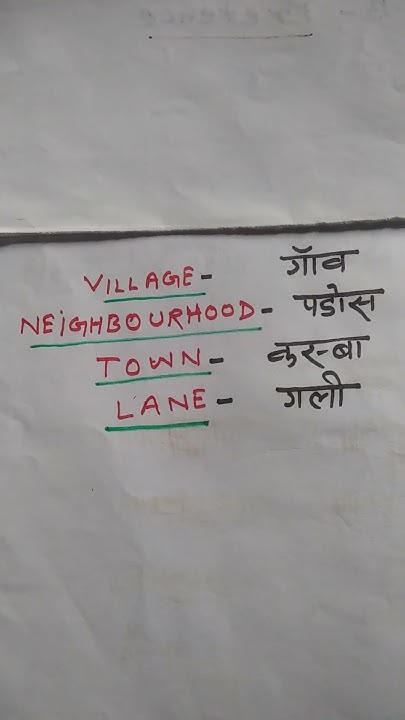 VILLAGE- गॉव
NEIGHBOURHOOD- पडोस
TOWN- कस्बा
LANE- गली